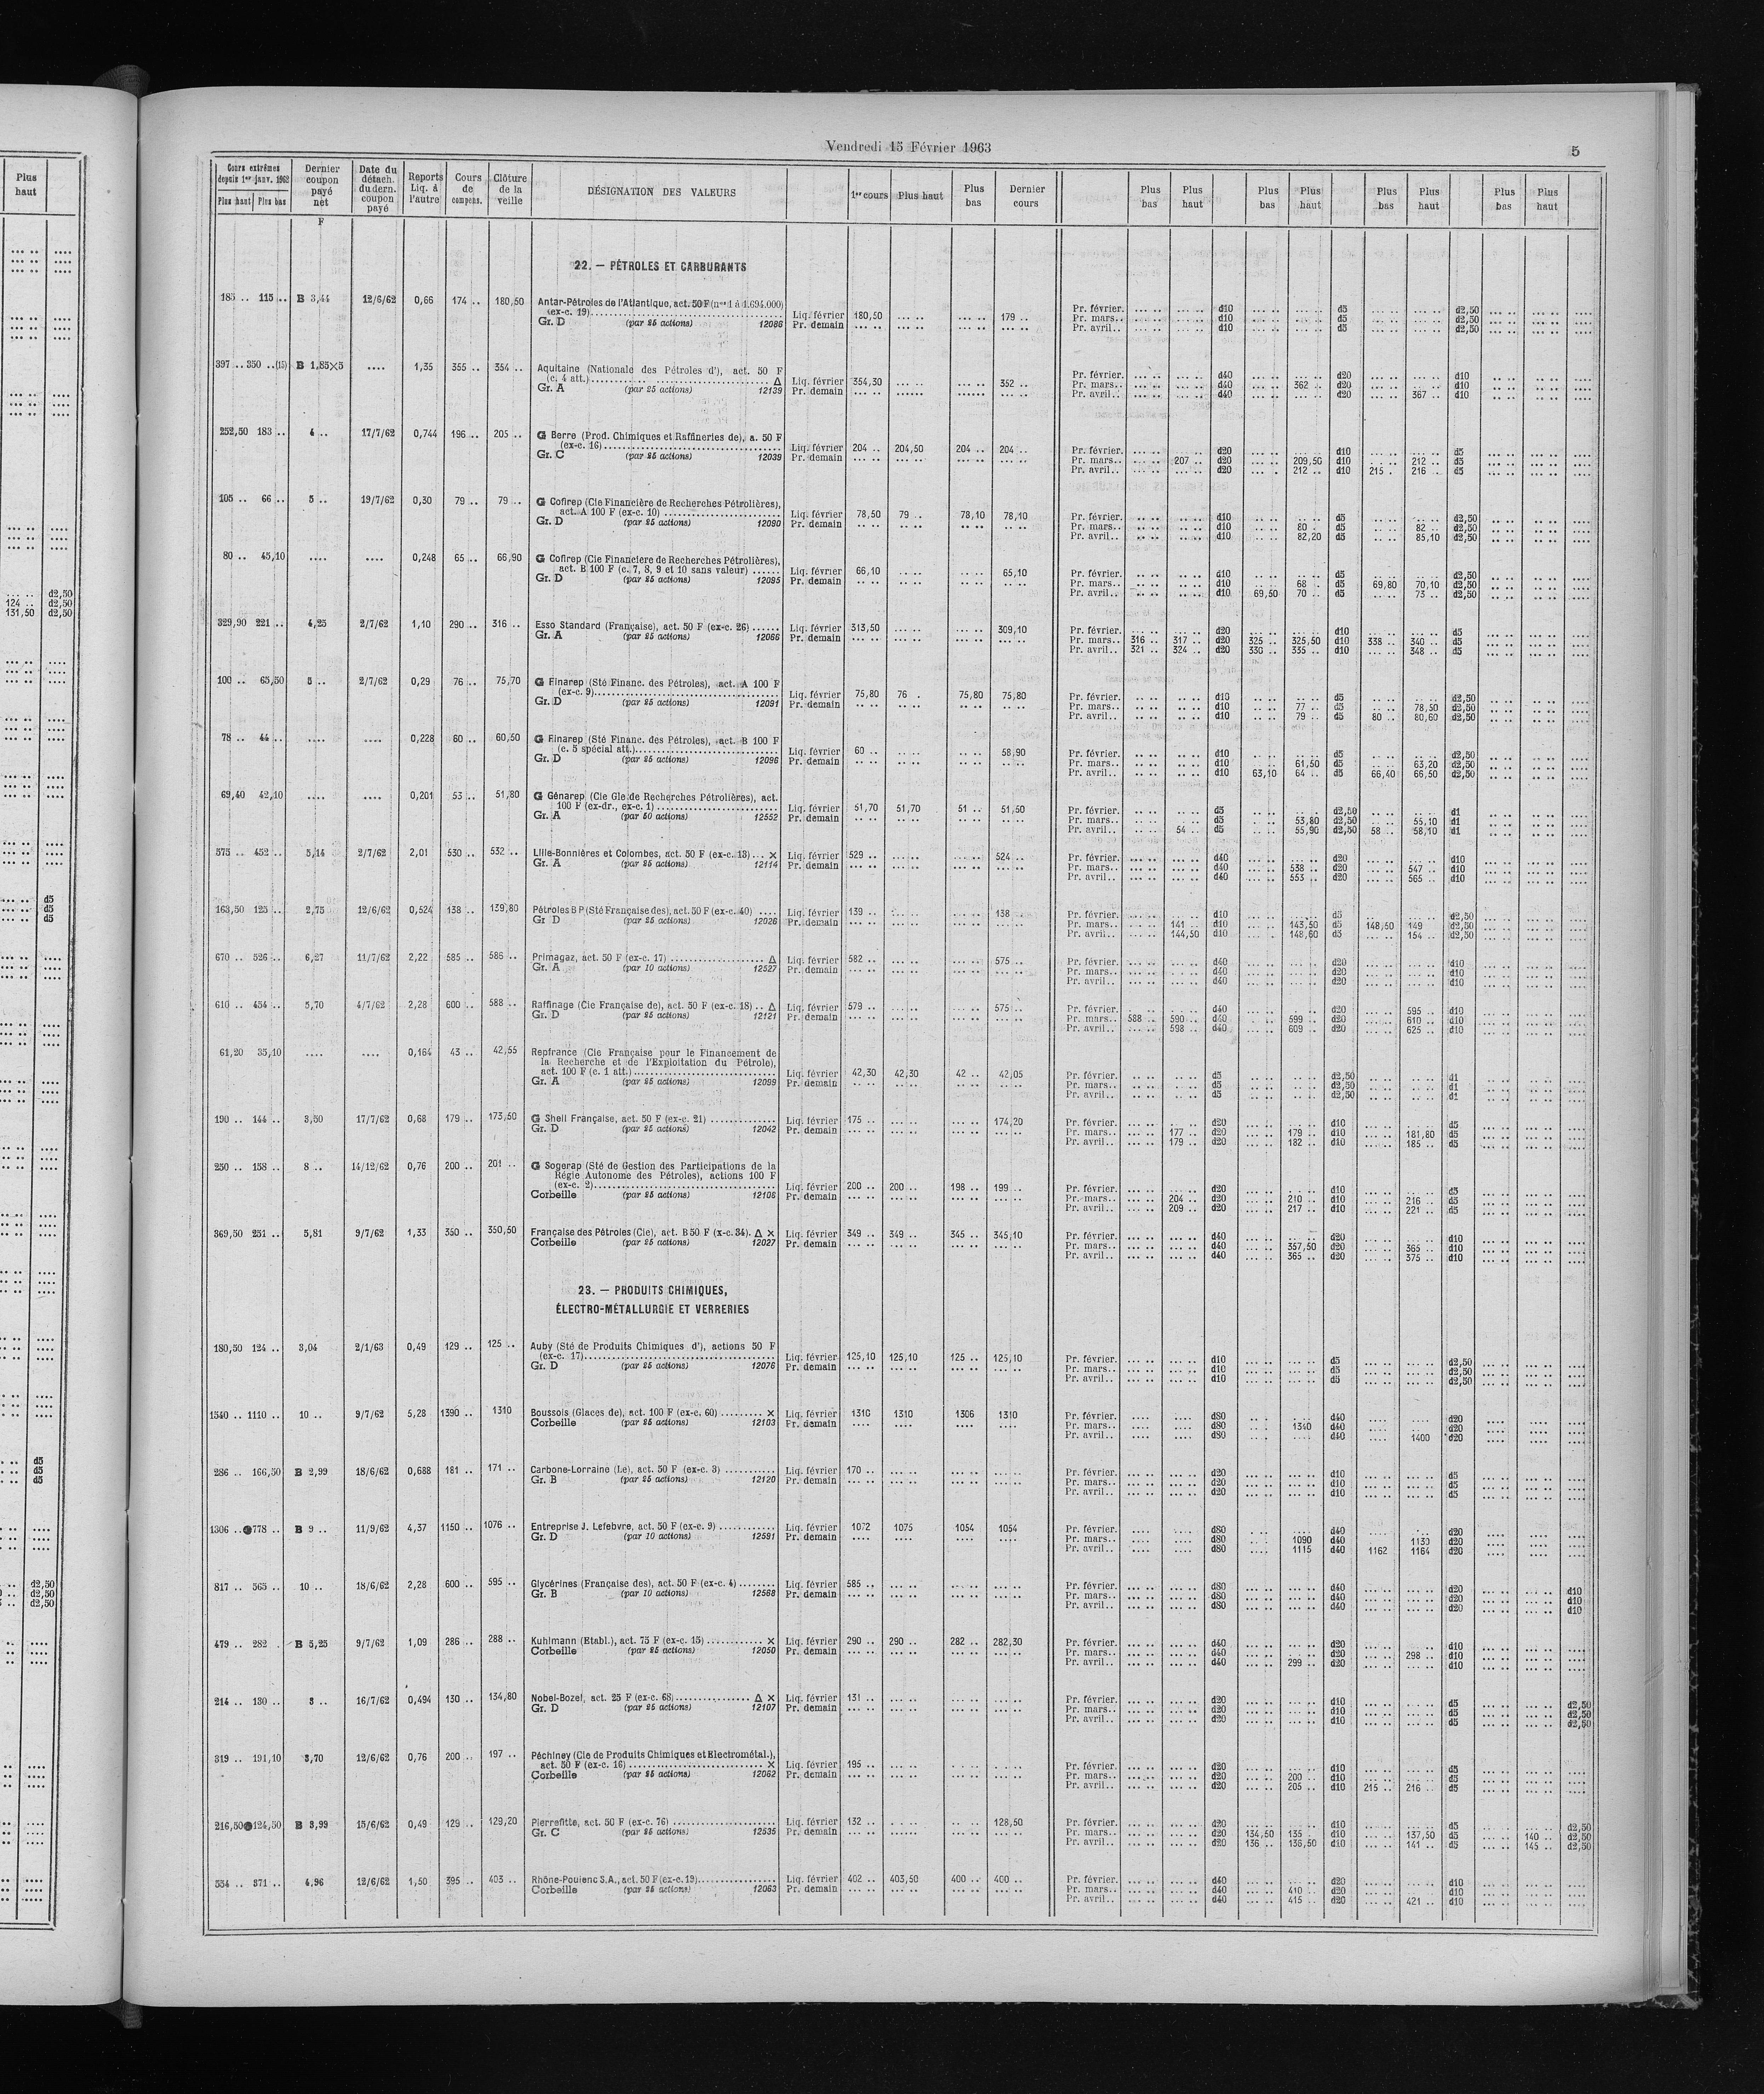 Plus haut
d2,50
124 .. d2,50
131,50 d2,50
d5
d5
d5
d5
d5
d5
d2,50
d2,50
d2,50
Vendredi 15 Février 1963
5
Cours extrêmes depuis 1er janv. 1962 Plus haut Plus bas | Dernier coupon payé net | Date du détach. du dern. coupon payé | Reports Liq. à l'autre | Cours de compens. | Clôture de la veille | DÉSIGNATION DES VALEURS | 1er cours | Plus haut | Plus bas | Dernier cours | Plus bas | Plus haut | Plus bas | Plus haut | Plus bas | Plus haut | Plus bas | Plus haut
F
22. — PÉTROLES ET CARBURANTS
185 .. 115 .. B 3,44 12/6/62 0,66 174 .. 180,50 Antar-Pétroles de l'Atlantique, act. 50 F (nos 1 à 1.694.000)
(ex-c. 19) Liq. février 180,50 179 .. Pr. février. d10 d5 d2,50
Gr. D (par 25 actions) 12086 Pr. demain Pr. mars.. d10 d5 d2,50
Pr. avril.. d10 d5 d2,50
397 .. 350 ..(15) B 1,85×5 .... 1,35 355 .. 354 .. Aquitaine (Nationale des Pétroles d'), act. 50 F
(c. 4 att.) Δ Liq. février 354,30 352 .. Pr. février. d40 d20 d10
Gr. A (par 25 actions) 12139 Pr. demain Pr. mars.. d40 362 .. d20 d10
Pr. avril.. d40 d20 367 .. d10
252,50 183 .. 4 .. 17/7/62 0,744 196 .. 205 .. G Berre (Prod. Chimiques et Raffineries de), a. 50 F
(ex-c. 16) Liq. février 204 .. 204,50 204 .. 204 .. Pr. février. d20 d10 d5
Gr. C (par 25 actions) 12039 Pr. demain Pr. mars.. 207 .. d20 209,50 d10 212 .. d5
Pr. avril.. d20 212 .. d10 215 .. 216 .. d5
105 .. 66 .. 5 .. 19/7/62 0,30 79 .. 79 .. G Cofirep (Cie Financière de Recherches Pétrolières),
act. A 100 F (ex-c. 10) Liq. février 78,50 79 .. 78,10 78,10 Pr. février. d10 d5 d2,50
Gr. D (par 25 actions) 12090 Pr. demain Pr. mars.. d10 80 . d5 82 .. d2,50
Pr. avril.. d10 82,20 d5 85,10 d2,50
80 .. 45,10 .... .... 0,248 65 .. 66,90 G Cofirep (Cie Financière de Recherches Pétrolières),
act. B 100 F (c. 7, 8, 9 et 10 sans valeur) Liq. février 66,10 65,10 Pr. février. d10 d5 d2,50
Gr. D (par 25 actions) 12095 Pr. demain Pr. mars.. d10 68 .. d5 69,80 70,10 d2,50
Pr. avril.. d10 69,50 70 .. d5 73 .. d2,50
329,90 221 .. 4,25 2/7/62 1,10 290 .. 316 .. Esso Standard (Française), act. 50 F (ex-c. 26) Liq. février 313,50 309,10 Pr. février. d20 d10 d5
Gr. A (par 25 actions) 12066 Pr. demain Pr. mars.. 316 .. 317 .. d20 325 .. 325,50 d10 338 .. 340 .. d5
Pr. avril.. 321 .. 324 .. d20 330 .. 335 .. d10 348 .. d5
100 .. 65,50 5 .. 2/7/62 0,29 76 .. 75,70 G Finarep (Sté Financ. des Pétroles), act. A 100 F
(ex-c. 9) Liq. février 75,80 76 . 75,80 75,80 Pr. février. d10 d5 d2,50
Gr. D (par 25 actions) 12091 Pr. demain Pr. mars.. d10 77 .. d5 78,50 d2,50
Pr. avril.. d10 79 .. d5 80 .. 80,60 d2,50
78 .. 44 .. .... .... 0,228 60 .. 60,50 G Finarep (Sté Financ. des Pétroles), act. B 100 F
(c. 5 spécial att.) Liq. février 60 .. 58,90 Pr. février. d10 d5 d2,50
Gr. D (par 25 actions) 12096 Pr. demain Pr. mars.. d10 61,50 d5 63,20 d2,50
Pr. avril.. d10 63,10 64 .. d5 66,40 66,50 d2,50
69,40 42,10 .... .... 0,201 53 .. 51,80 G Génarep (Cie Gle de Recherches Pétrolières), act.
100 F (ex-dr., ex-c. 1) Liq. février 51,70 51,70 51 .. 51,50 Pr. février. d5 d2,50 d1
Gr. A (par 50 actions) 12552 Pr. demain Pr. mars.. d5 53,80 d2,50 55,10 d1
Pr. avril.. 54 .. d5 55,90 d2,50 58 .. 58,10 d1
575 .. 452 .. 5,14 2/7/62 2,01 530 .. 532 .. Lille-Bonnières et Colombes, act. 50 F (ex-c. 13) × Liq. février 529 .. 524 .. Pr. février. d40 d20 d10
Gr. A (par 25 actions) 12114 Pr. demain Pr. mars.. d40 538 .. d20 547 .. d10
Pr. avril.. d40 553 .. d20 565 .. d10
163,50 125 .. 2,75 12/6/62 0,524 138 .. 139,80 Pétroles B P (Sté Française des), act. 50 F (ex-c. 40) Liq. février 139 .. 138 .. Pr. février. d10 d5 d2,50
Gr D (par 25 actions) 12026 Pr. demain Pr. mars.. 141 .. d10 143,50 d5 148,50 149 d2,50
Pr. avril.. 144,50 d10 148,60 d5 154 .. d2,50
670 .. 526 .. 6,27 11/7/62 2,22 585 .. 586 .. Primagaz, act. 50 F (ex-c. 17) Δ Liq. février 582 .. 575 .. Pr. février. d40 d20 d10
Gr. A (par 10 actions) 12527 Pr. demain Pr. mars.. d40 d20 d10
Pr. avril.. d40 d20 d10
610 .. 454 .. 5,70 4/7/62 2,28 600 .. 588 .. Raffinage (Cie Française de), act. 50 F (ex-c. 18) .. Δ Liq. février 579 .. 575 .. Pr. février. d40 d20 595 .. d10
Gr. D (par 25 actions) 12121 Pr. demain Pr. mars.. 588 .. 590 .. d40 599 .. d20 610 .. d10
Pr. avril.. 598 .. d40 609 .. d20 625 .. d10
61,20 35,10 .... .... 0,164 43 .. 42,55 Repfrance (Cie Française pour le Financement de
la Recherche et de l'Exploitation du Pétrole),
act. 100 F (c. 1 att.) Liq. février 42,30 42,30 42 .. 42,05 Pr. février. d5 d2,50 d1
Gr. A (par 25 actions) 12099 Pr. demain Pr. mars.. d5 d2,50 d1
Pr. avril.. d5 d2,50 d1
190 .. 144 .. 3,50 17/7/62 0,68 179 .. 173,50 G Shell Française, act. 50 F (ex-c. 21) Liq. février 175 .. 174,20 Pr. février. d20 d10 d5
Gr. D (par 25 actions) 12042 Pr. demain Pr. mars.. 177 .. d20 179 .. d10 181,80 d5
Pr. avril.. 179 .. d20 182 .. d10 185 .. d5
250 .. 158 .. 8 .. 14/12/62 0,76 200 .. 201 .. G Sogerap (Sté de Gestion des Participations de la
Régie Autonome des Pétroles), actions 100 F
(ex-c. 2) Liq. février 200 .. 200 .. 198 .. 199 .. Pr. février. d20 d10 d5
Corbeille (par 25 actions) 12108 Pr. demain Pr. mars.. 204 .. d20 210 .. d10 216 .. d5
Pr. avril.. 209 .. d20 217 .. d10 221 .. d5
369,50 251 .. 5,81 9/7/62 1,33 350 .. 350,50 Française des Pétroles (Cie), act. B 50 F (x-c. 34). Δ × Liq. février 349 .. 349 .. 345 .. 345,10 Pr. février. d40 d20 d10
Corbeille (par 25 actions) 12027 Pr. demain Pr. mars.. d40 357,50 d20 365 .. d10
Pr. avril.. d40 365 .. d20 375 .. d10
23. — PRODUITS CHIMIQUES,
ÉLECTRO-MÉTALLURGIE ET VERRERIES
180,50 124 .. 3,04 2/1/63 0,49 129 .. 125 .. Auby (Sté de Produits Chimiques d'), actions 50 F
(ex-c. 17) Liq. février 125,10 125,10 125 .. 125,10 Pr. février. d10 d5 d2,50
Gr. D (par 25 actions) 12076 Pr. demain Pr. mars.. d10 d5 d2,50
Pr. avril.. d10 d5 d2,50
1540 .. 1110 .. 10 .. 9/7/62 5,28 1390 .. 1310 Boussois (Glaces de), act. 100 F (ex-c. 60) × Liq. février 1310 1310 1306 1310 Pr. février. d80 d40 d20
Corbeille (par 25 actions) 12103 Pr. demain Pr. mars.. d80 1340 d40 d20
Pr. avril.. d80 d40 1400 d20
286 .. 166,50 B 2,99 18/6/62 0,688 181 .. 171 .. Carbone-Lorraine (Le), act. 50 F (ex-c. 3) Liq. février 170 .. Pr. février. d20 d10 d5
Gr. B (par 25 actions) 12120 Pr. demain Pr. mars.. d20 d10 d5
Pr. avril.. d20 d10 d5
1306 .. 778 .. B 9 .. 11/9/62 4,37 1150 .. 1076 .. Entreprise J. Lefebvre, act. 50 F (ex-c. 9) Liq. février 1072 1075 1054 1054 Pr. février. d80 d40 d20
Gr. D (par 10 actions) 12591 Pr. demain Pr. mars.. d80 1090 d40 1130 d20
Pr. avril.. d80 1115 d40 1162 1164 d20
817 .. 565 .. 10 .. 18/6/62 2,28 600 .. 595 .. Glycérines (Française des), act. 50 F (ex-c. 4) Liq. février 585 .. Pr. février. d80 d40 d20 d10
Gr. B (par 10 actions) 12568 Pr. demain Pr. mars.. d80 d40 d20 d10
Pr. avril.. d80 d40 d20 d10
479 .. 282 . B 5,25 9/7/62 1,09 286 .. 288 .. Kuhlmann (Etabl.), act. 75 F (ex-c. 15) × Liq. février 290 .. 290 .. 282 .. 282,30 Pr. février. d40 d20 d10
Corbeille (par 25 actions) 12050 Pr. demain Pr. mars.. d40 d20 298 .. d10
Pr. avril.. d40 299 .. d20 d10
214 .. 130 .. 3 .. 16/7/62 0,494 130 .. 134,80 Nobel-Bozel, act. 25 F (ex-c. 68) Δ × Liq. février 131 .. Pr. février. d20 d10 d5 d2,50
Gr. D (par 25 actions) 12107 Pr. demain Pr. mars.. d20 d10 d5 d2,50
Pr. avril.. d20 d10 d5 d2,50
319 .. 191,10 3,70 12/6/62 0,76 200 .. 197 .. Péchiney (Cie de Produits Chimiques et Electrométal.),
act. 50 F (ex-c. 16) × Liq. février 195 .. Pr. février. d20 d10 d5
Corbeille (par 25 actions) 12062 Pr. demain Pr. mars.. d20 200 .. d10 d5
Pr. avril.. d20 205 .. d10 215 .. 216 .. d5
216,50 124,50 B 3,99 15/6/62 0,49 129 .. 129,20 Pierrefitte, act. 50 F (ex-c. 76) Liq. février 132 .. 128,50 Pr. février. d20 d10 d5 d2,50
Gr. C (par 25 actions) 12535 Pr. demain Pr. mars.. d20 134,50 135 .. d10 137,50 d5 140 .. d2,50
Pr. avril.. d20 136 .. 136,50 d10 141 .. d5 145 .. d2,50
534 .. 371 .. 4,96 12/6/62 1,50 395 .. 403 .. Rhône-Poulenc S.A., act. 50 F (ex-c. 19) Liq. février 402 .. 403,50 400 .. 400 .. Pr. février. d40 d20 d10
Corbeille (par 25 actions) 12063 Pr. demain Pr. mars.. d40 410 .. d20 d10
Pr. avril.. d40 415 .. d20 421 .. d10